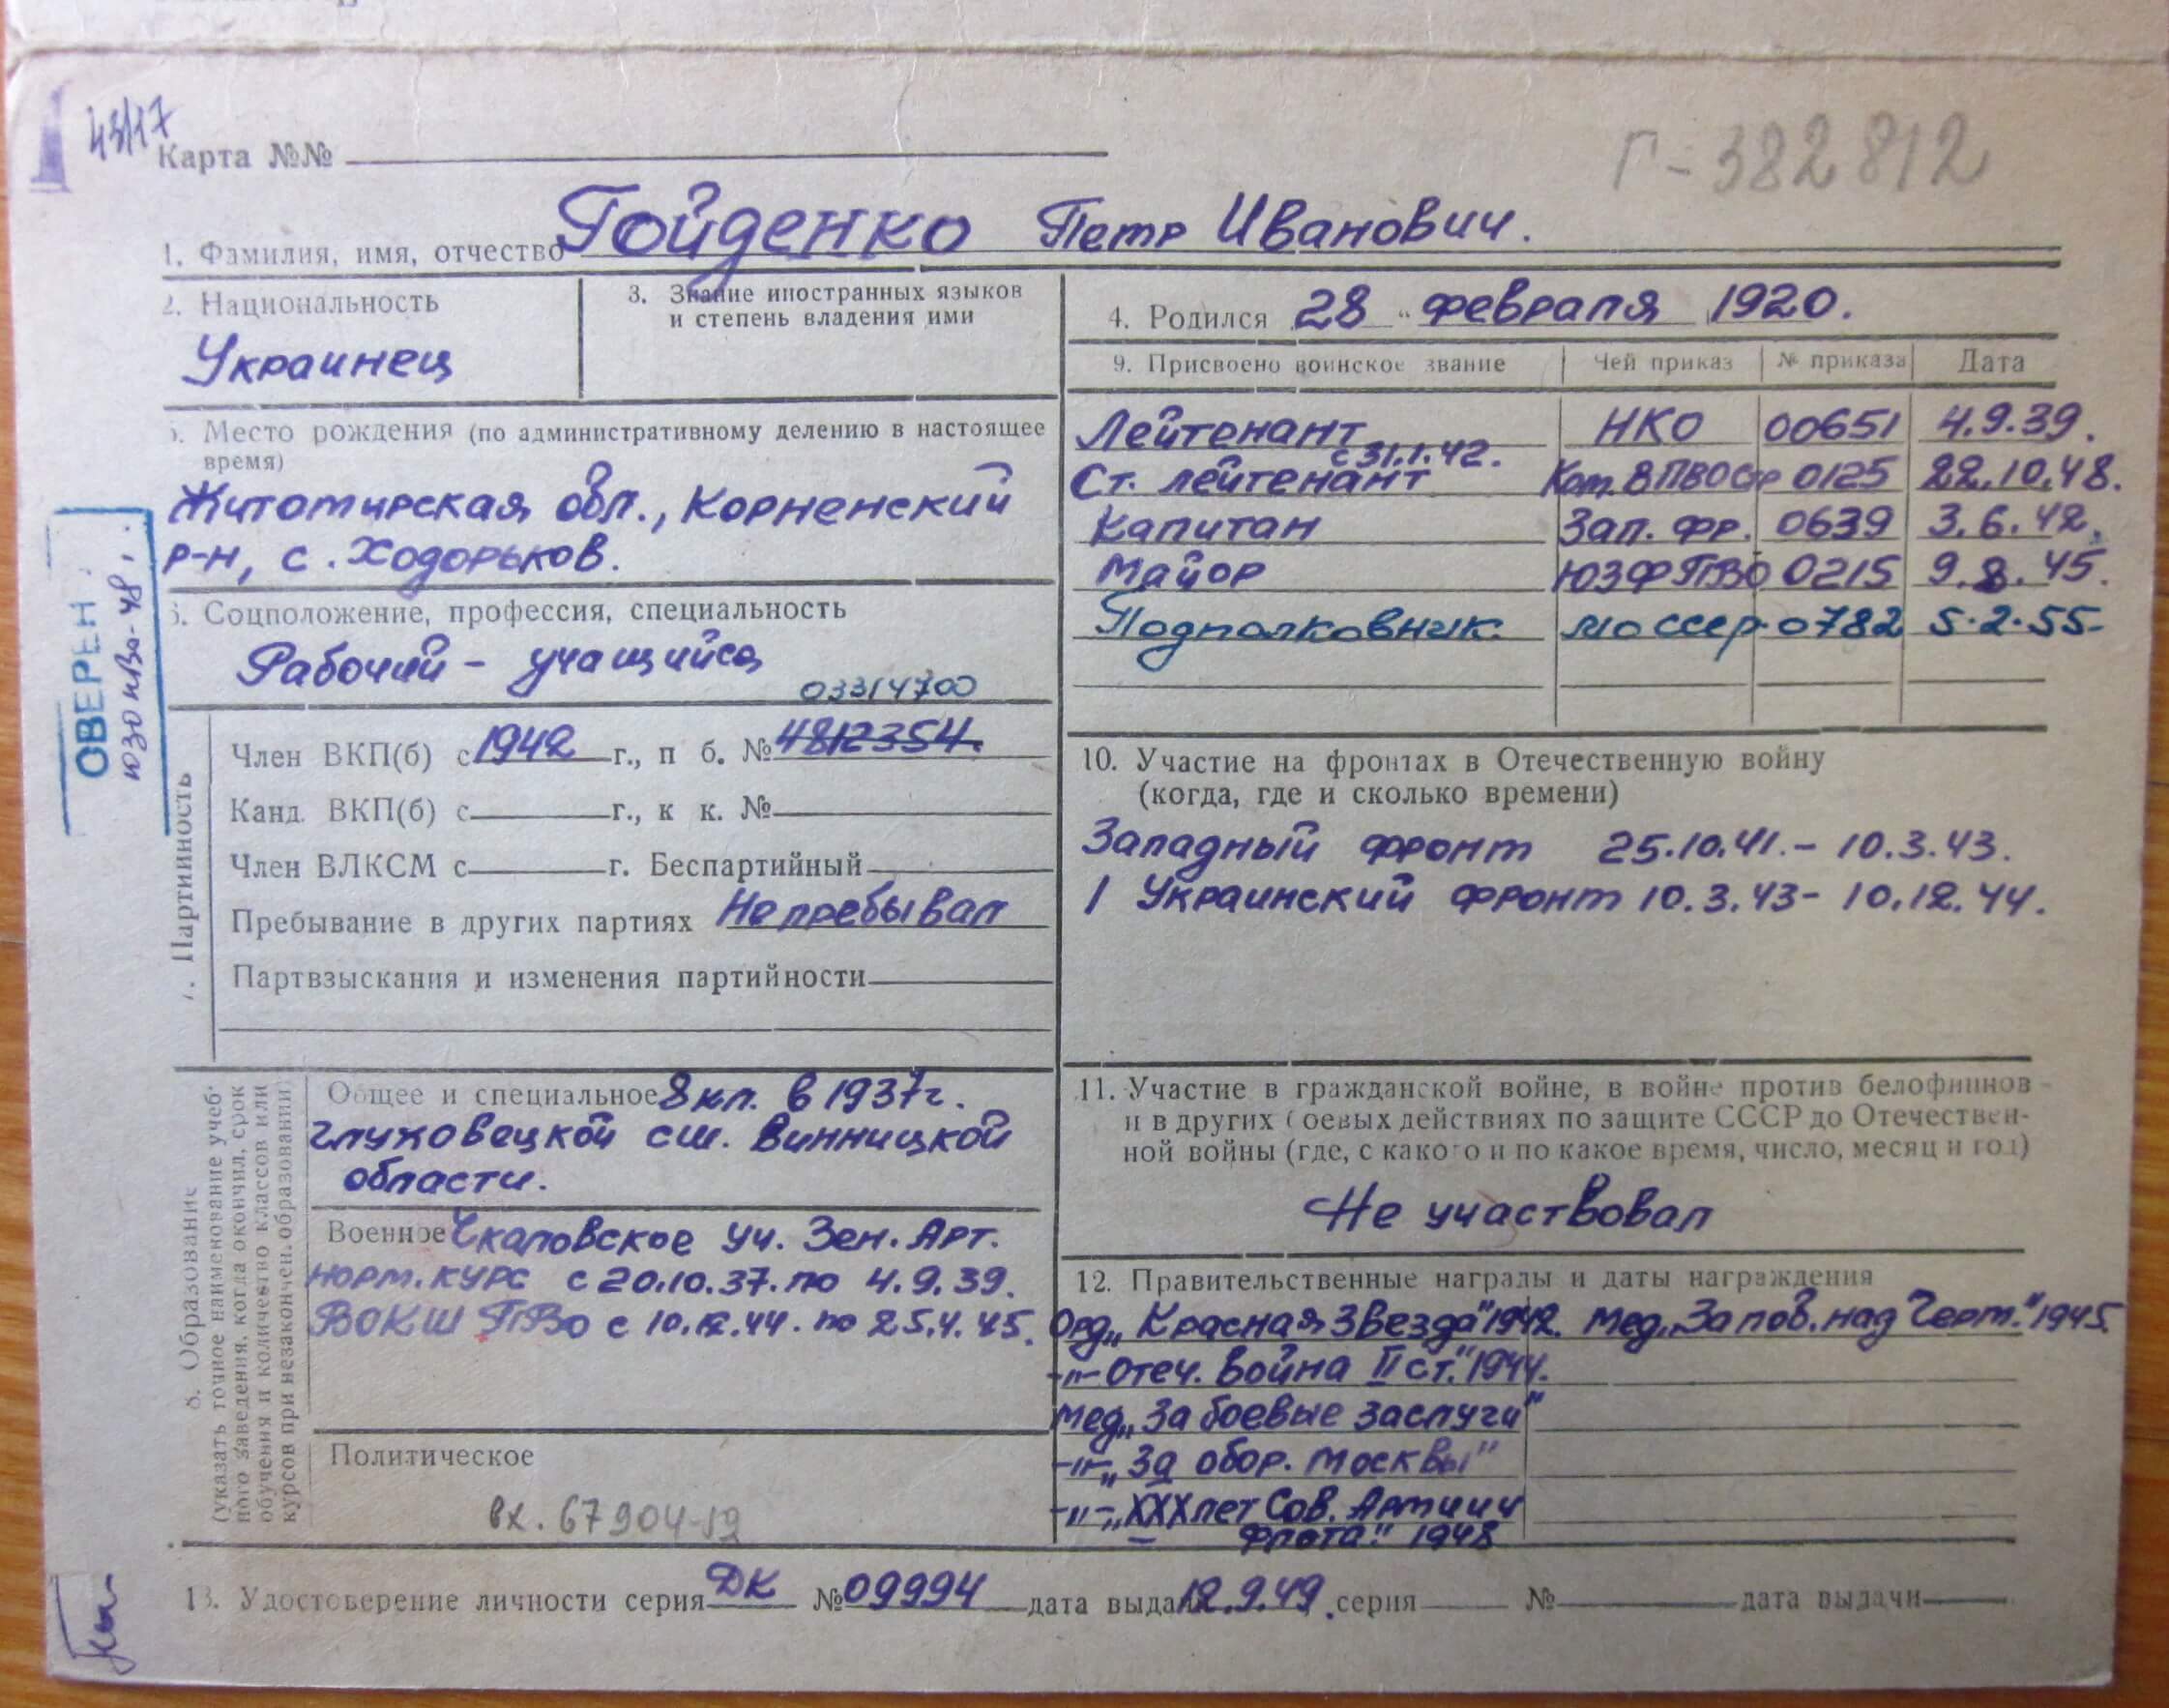 43/17
Карта №№
Г-382812
1. Фамилия, имя, отчество Гойденко Петр Иванович.
2. Национальность
Украинец
3. Знание иностранных языков
и степень владения ими
4. Родился 28 " февраля 1920.
5. Место рождения (по административному делению в настоящее
время)
Житомирская обл., Корненский
р-н, с. Ходорьков.
ОВЕРЕН
6. Соцположение, профессия, специальность
Рабочий - учащийся
7. Партийность
03314700
Член ВКП(б) с 1942 г., п б. № 4812354.
Канд. ВКП(б) с г., к к. №
Член ВЛКСМ с г. Беспартийный
Пребывание в других партиях Не пребывал
Партвзыскания и изменения партийности
8. Образование
(указать точное наименование учеб-
ного заведения, когда окончил, срок
обучения и количество классов или
курсов при незакончен. образовании)
Общее и специальное 8 кл. в 1937г.
Глуховецкой сш. Винницкой
области.
Военное Чкаловское уч. Зен. Арт.
норм. курс с 20.10.37. по 4.9.39.
ВОКШ ПВО с 10.12.44. по 25.4.45.
Политическое
вх. 67904-
9. Присвоено воинское звание Чей приказ № приказа Дата
Лейтенант НКО 00651 4.9.39.
с 31.1.42.
Ст. лейтенант Ком. ВПВО 0125 22.10.48.
Капитан Зап. фр. 0639 3.6.42.
Майор ЮЗФ ПВО 0215 9.8.45.
Подполковник МО СССР 0782 5.2.55
10. Участие на фронтах в Отечественную войну
(когда, где и сколько времени)
Западный фронт 25.10.41. - 10.3.43.
1 Украинский фронт 10.3.43 - 10.12.44.
11. Участие в гражданской войне, в войне против белофиннов
и в других боевых действиях по защите СССР до Отечествен-
ной войны (где, с какого и по какое время, число, месяц и год)
Не участвовал
12. Правительственные награды и даты награждения
Орд. „Красная Звезда" 1942. Мед. „За поб. над Герм." 1945.
-"- Отеч. Война II ст." 1944.
Мед. „За боевые заслуги"
-"- „За обор. Москвы"
-"- „XXX лет Сов. Армии и
Флота" 1948
13. Удостоверение личности серия ДК № 09994 дата выдачи 12.9.49. серия № дата выдачи